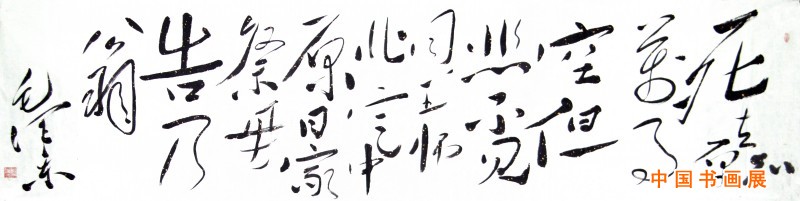 死去原知
萬事
空但
悲不見
同王师
北定中
原日家
祭毋
告乃
翁
毛泽东
中国书画展